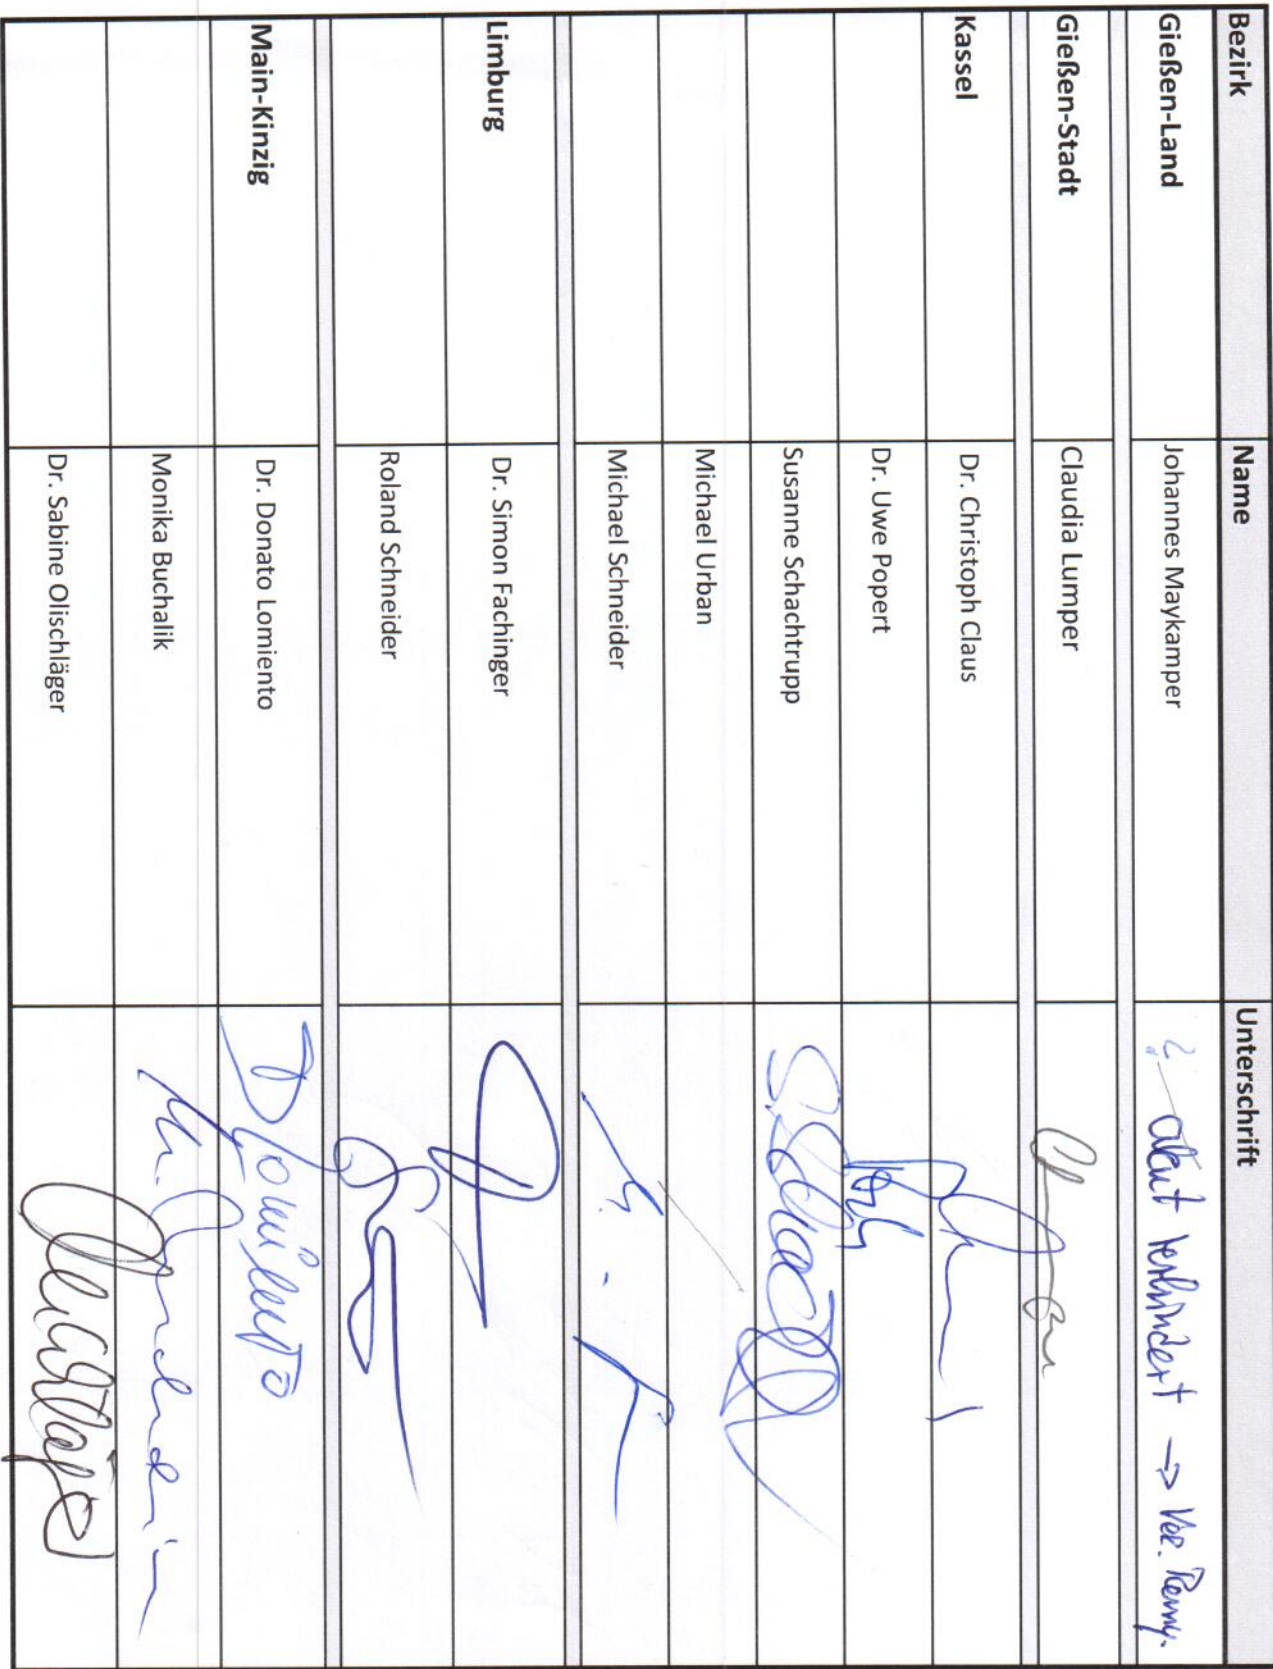 Bezirk Name Unterschrift
Gießen-Land Johannes Maykamper akut verhindert → Ver. Remy.
Gießen-Stadt Claudia Lumper
Kassel Dr. Christoph Claus
Dr. Uwe Popert
Susanne Schachtrupp
Michael Urban
Michael Schneider
Limburg Dr. Simon Fachinger
Roland Schneider
Main-Kinzig Dr. Donato Lomiento D Lomiento
Monika Buchalik
Dr. Sabine Olischläger